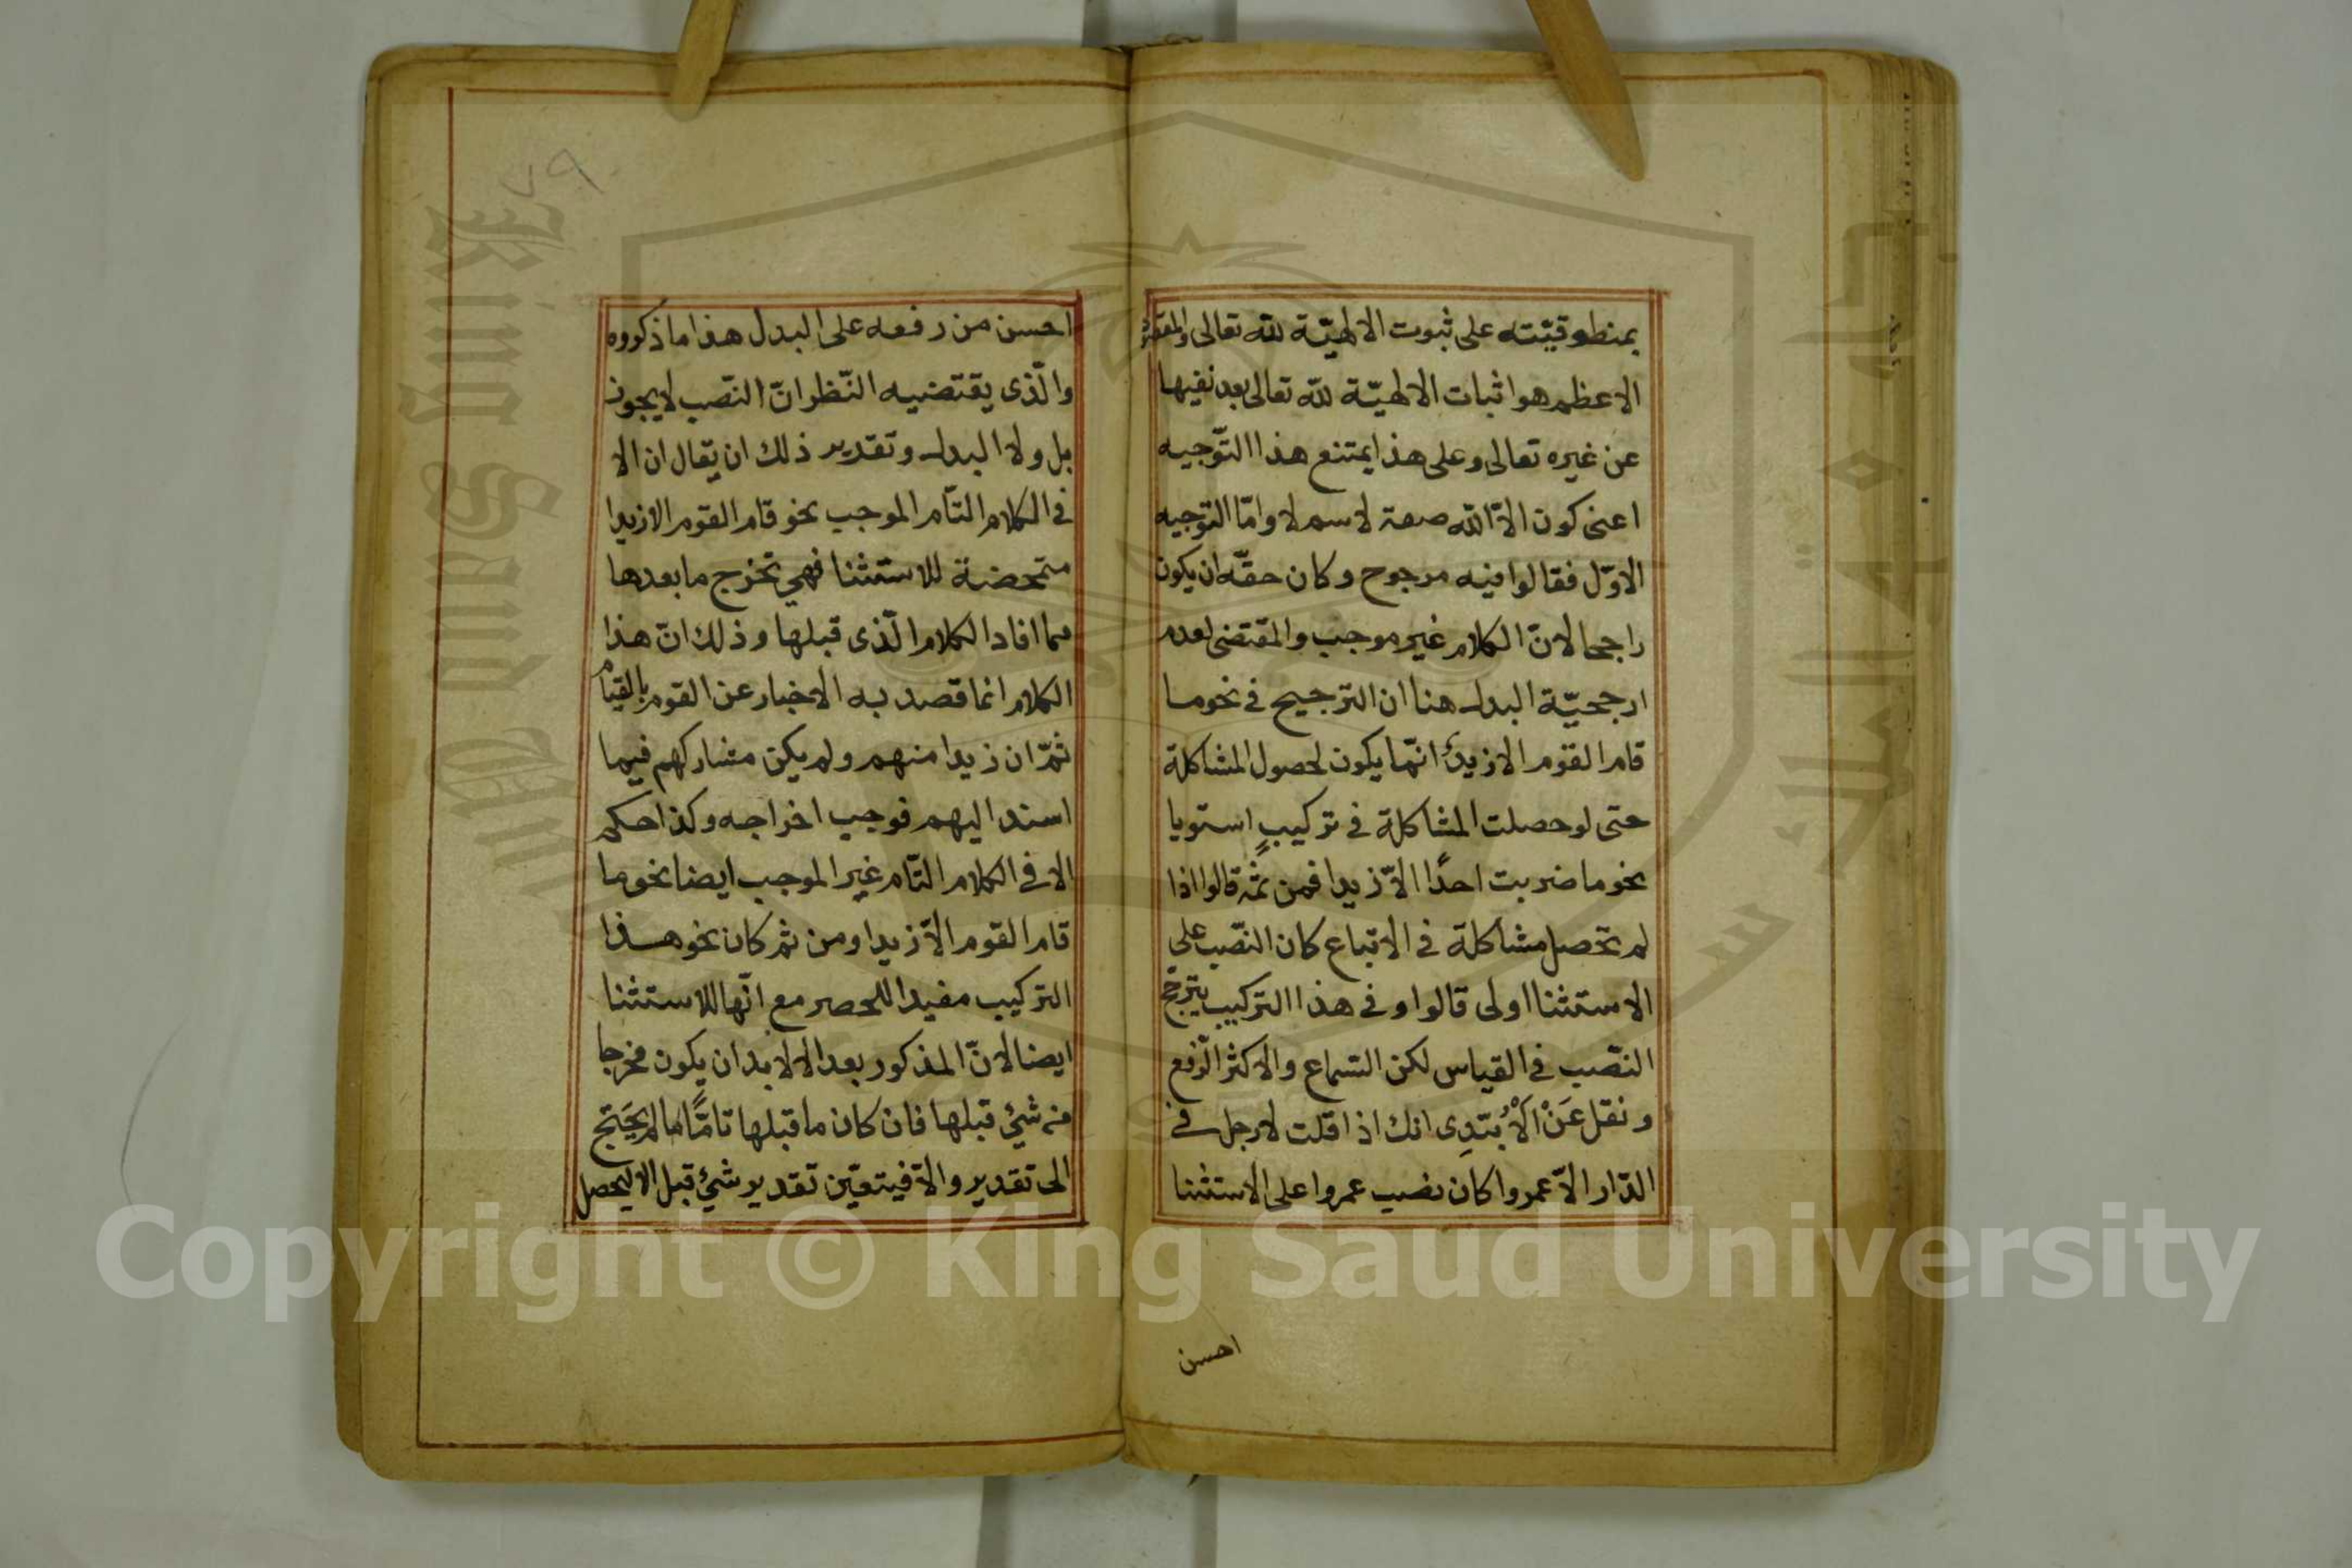 بمنطوقيّته على ثبوت الالهيّة لله تعالى والمقصود
الاعظم هو اثبات الالهيّة لله تعالى بعد نفيها
عن غيره تعالى وعلى هذا يمتنع هذا التّوجيه
اعنى كون الاّ الله صفة لاسم لا وامّا التّوجيه
الاوّل فقالوا فيه مرجوح وكان حقّه ان يكون
راجحا لانّ الكلام غير موجب والمقتضى لعدم
ارجحيّة البدل هنا ان الترجيح فى نحو ما
قام القوم الا زيدٌ انّما يكون لحصول المشاكلة
حتى لو حصلت المشاكلة فى تركيبٍ استويا
نحو ما ضربت احدًا الاّ زيدا فمن ثمّه قالوا اذا
لم تحصل مشاكلة فى الاتباع كان النّصب على
الاستثنا اولى قالوا وفى هذا التركيب يترجّح
النّصب فى القياس لكن السّماع والاكثر الرّفع
ونقل عَنْ الاُبَّدِى انك اذا قلت لا رجل فى
الدّار الاّ عمروا كان نصب عمروا على الاستثنا
احسن
٧٩
احسن من رفعه على البدل هذا ما ذكروه
والّذى يقتضيه النّظر انّ النّصب لا يجوز
بل ولا البدل وتقدير ذلك ان يقال ان الا
فى الكلام التّام الموجب نحو قام القوم الا زيدا
متمحضة للاستثنا فهى تخرج ما بعدها
مما افاد الكلام الّذى قبلها وذلك انّ هذا
الكلام انما قصد به الاخبار عن القوم بالقيام
ثمّ ان زيدا منهم ولم يكن مشاركهم فيما
اسند اليهم فوجب اخراجه وكذا حكم
الا فى الكلام التّام غير الموجب ايضا نحو ما
قام القوم الاّ زيدا ومن ثم كان نحو هذا
التركيب مفيدا للحصر مع انّها للاستثنا
ايضا لانّ المذكور بعد الا لا بد ان يكون مخرجا
من شئ قبلها فان كان ما قبلها تامًّا لم يَحْتَج
الى تقدير والاّ فيتعيّن تقدير شئ قبل الا ليحصل
Copyright © King Saud University